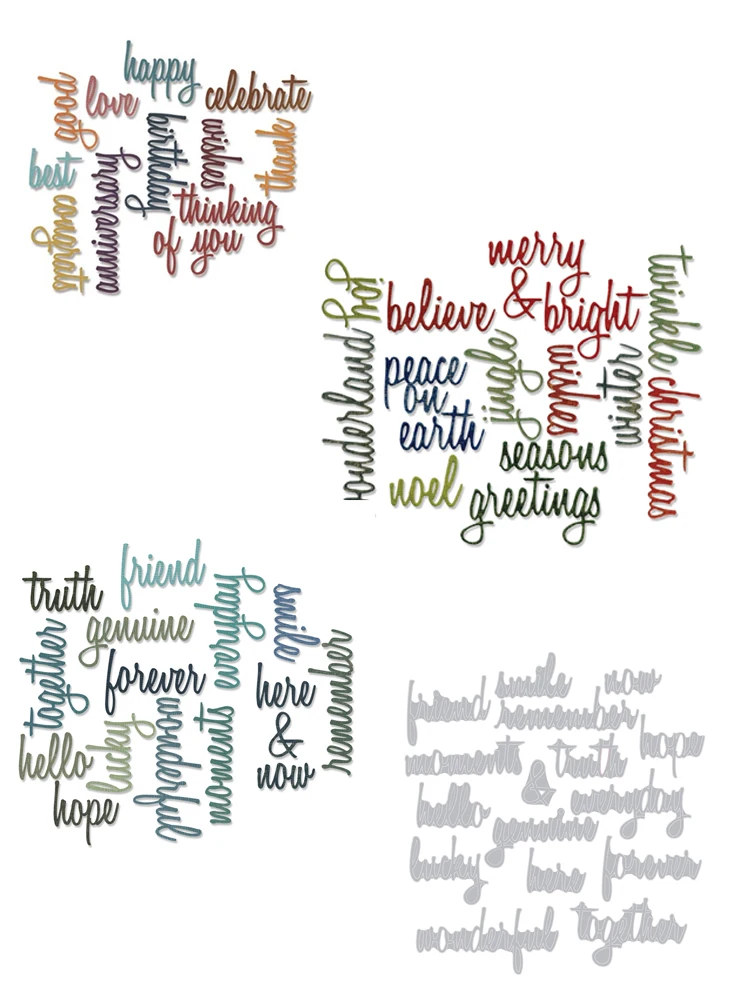 happy
good
love
celebrate
birthday
wishes
thank
best
anniversary
congrats
thinking
of you
merry
&
bright
joy
believe
twinkle
onderland
peace
on
earth
jingle
wishes
winter
christmas
seasons
greetings
noel
friend
truth
genuine
everyday
smile
together
forever
here
&
now
remember
hello
lucky
wonderful
moments
hope
friend
smile
now
remember
moments
truth
hope
&
hello
genuine
everyday
lucky
here
forever
wonderful
together